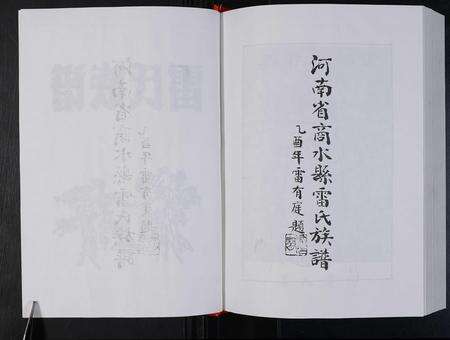 河南省商水縣雷氏族譜
乙酉年雷有庭題